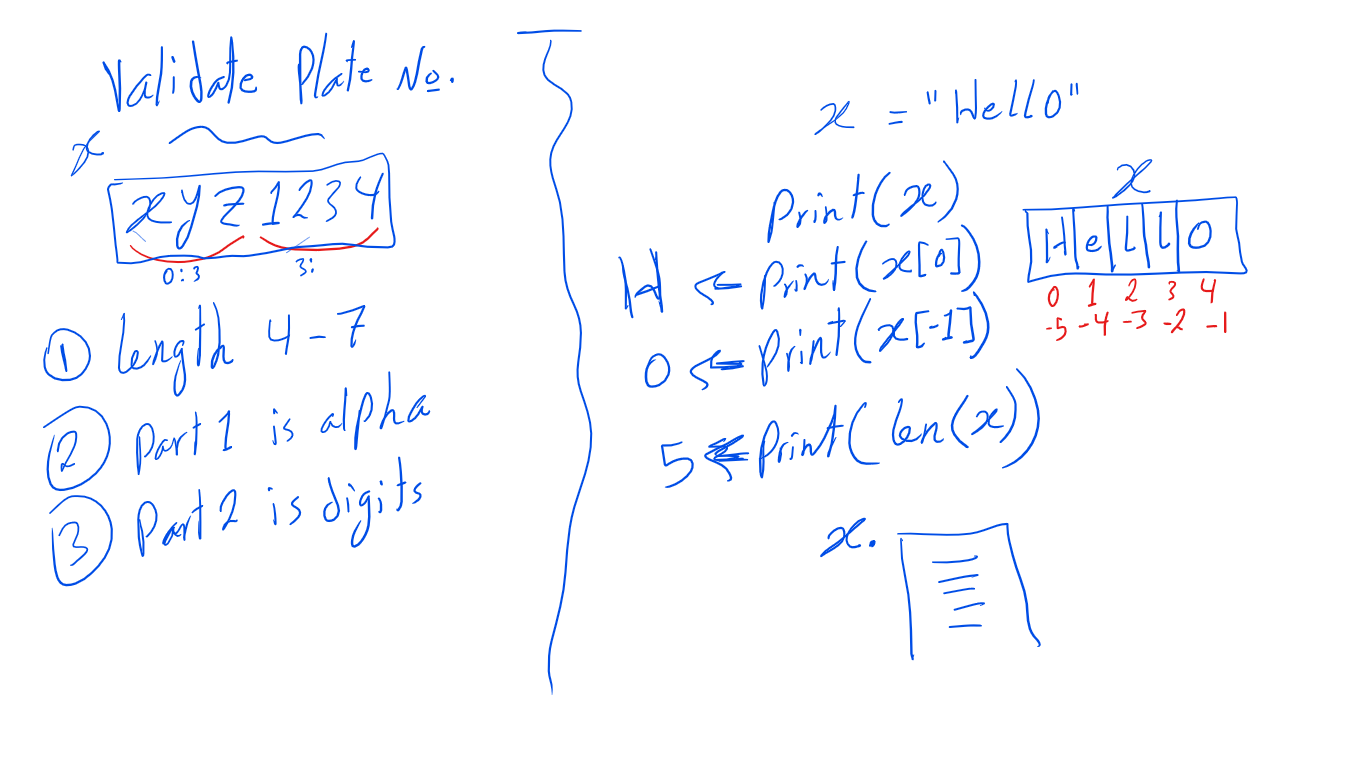 Validate Plate No.
x
xyz1234
0:3 3:
1 length 4-7
2 Part 1 is alpha
3 Part 2 is digits
x = "Hello"
Print(x)
H ← Print(x[0])
o ← Print(x[-1])
5 ← Print(len(x))
x
H e l l o
0 1 2 3 4
-5 -4 -3 -2 -1
x.